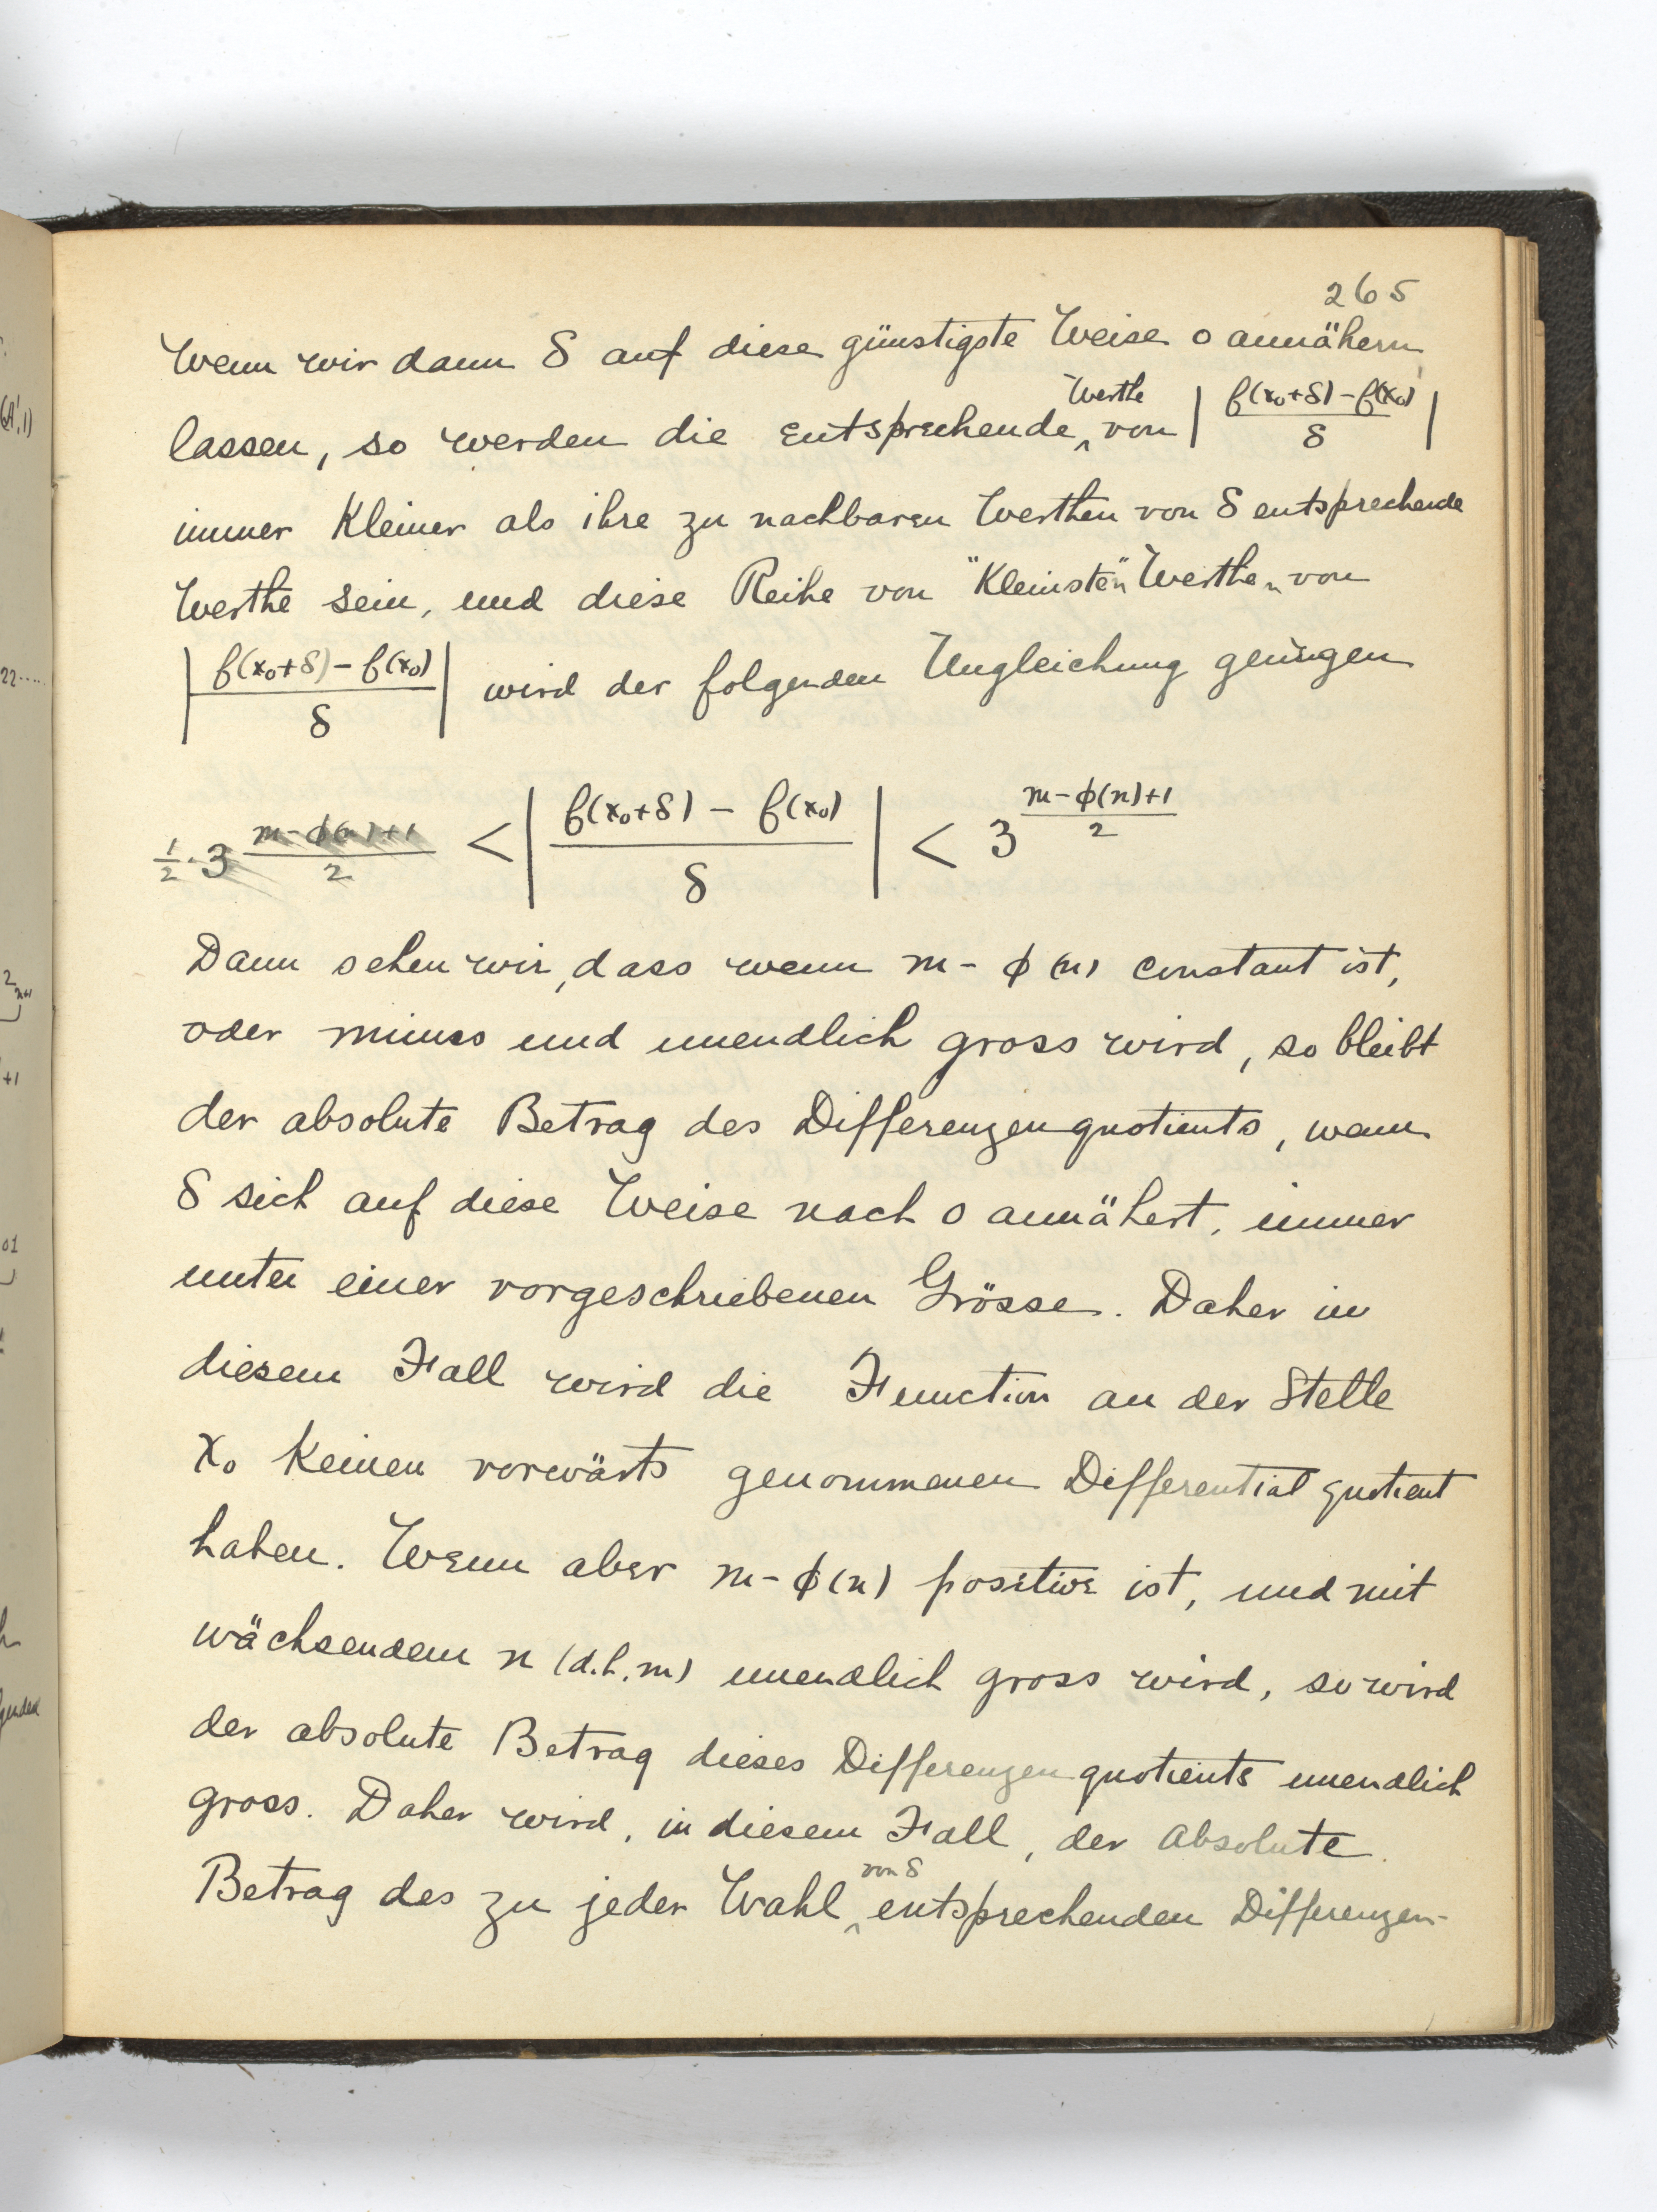 265
Wenn wir dann δ auf diese günstigste Weise 0 annähern
lassen, so werden die entsprechende Werthe von | f(x₀+δ) - f(x₀) / δ |
immer kleiner als ihre zu nachbaren Werthen von δ entsprechende
Werthe sein, und diese Reihe von "Kleinsten" Werthen von
| f(x₀+δ) - f(x₀) / δ | wird der folgenden Ungleichung genügen
1/2 · 3^((m-ϕ(n)+1)/2) < | f(x₀+δ) - f(x₀) / δ | < 3^((m-ϕ(n)+1)/2)
Dann sehen wir, dass wenn m - ϕ(n) constant ist,
oder minus und unendlich gross wird, so bleibt
der absolute Betrag des Differenzenquotients, wenn
δ sich auf diese Weise nach 0 annähert, immer
unter einer vorgeschriebenen Grösse. Daher in
diesem Fall wird die Function an der Stelle
x₀ keinen vorwärts genommenen Differential quotient
haben. Wenn aber m - ϕ(n) positive ist, und mit
wächsendem n (d.h. m) unendlich gross wird, so wird
der absolute Betrag dieses Differenzenquotients unendlich
gross. Daher wird, in diesem Fall, der absolute
Betrag des zu jeder Wahl von δ entsprechenden Differenzen-
(A',1)
22.....
2
n+1
+1
01